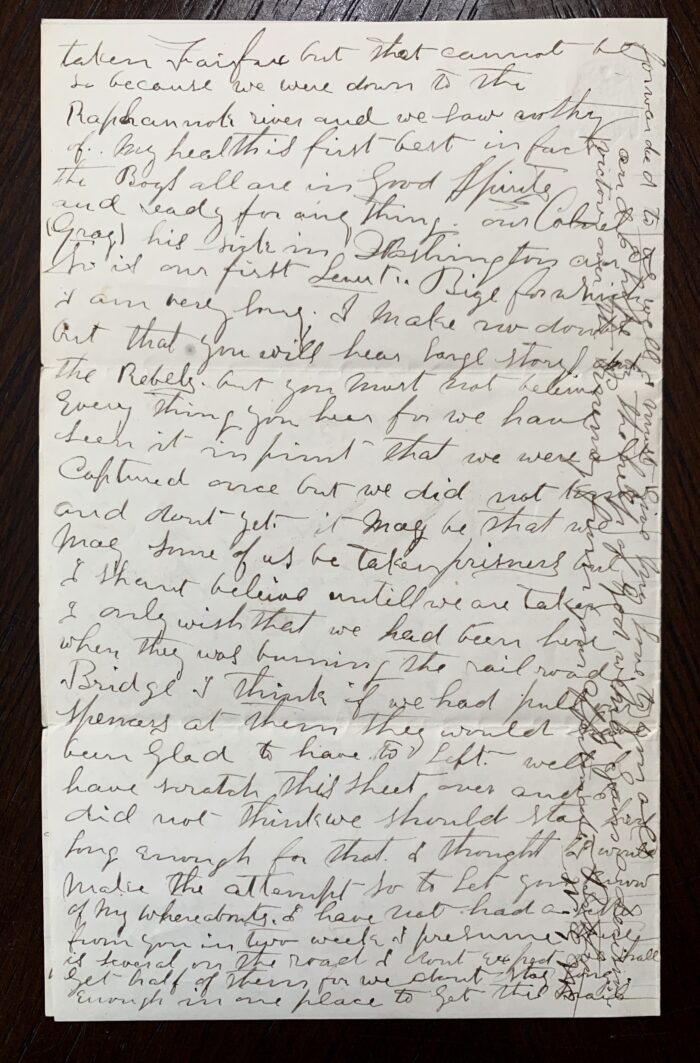 taken Fairfax but that cannot be
so because we were down to the
Raphannok river and we saw nothing
of. My health is first best in fact
the Boys all are in Good Spirits
and ready for any thing. our Colonel
(Gray) his sick in Washington and
So is our first Leut..
I am very long. I make no doubt
but that you will hear large story
the Rebels. but you must not believe
Every thing you hear for we have
seen it in print that we were
Captured once but we did not
and dont yet. it May be that we
May some of us be taken prisners but
I shant beleive untill we are taken
I only wish that we had been here
when they was burning the railroad
Bridge I think if we had
spencers at them they would
been Glad to have to Left. well I
have scratch this sheet over and I
did not think we should stay here
long enough for that. I thought I would
Make the attempt so to Let you know
of My whereabouts. I have not had a letter
from you in two week I presume there
is several on the road I dont expect I shall
Get half of them for we dont stay long
Enough in one place to Get the Mail
forwarded to us well I must Give my love to you all
and hope by the help of God
victory over